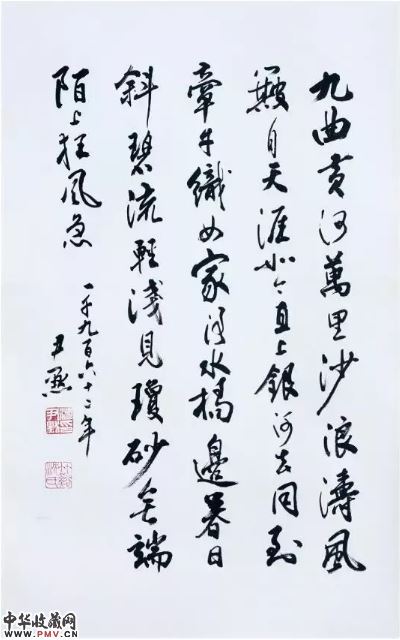 九曲黄河萬里沙浪濤風
簸自天涯如今直上銀河去同到
牽牛織女家洛水橋邊春日
斜碧流輕淺見瓊砂無端
陌上狂風急
一千九百六十二年
尹默
中华收藏网
www.PMV.CN